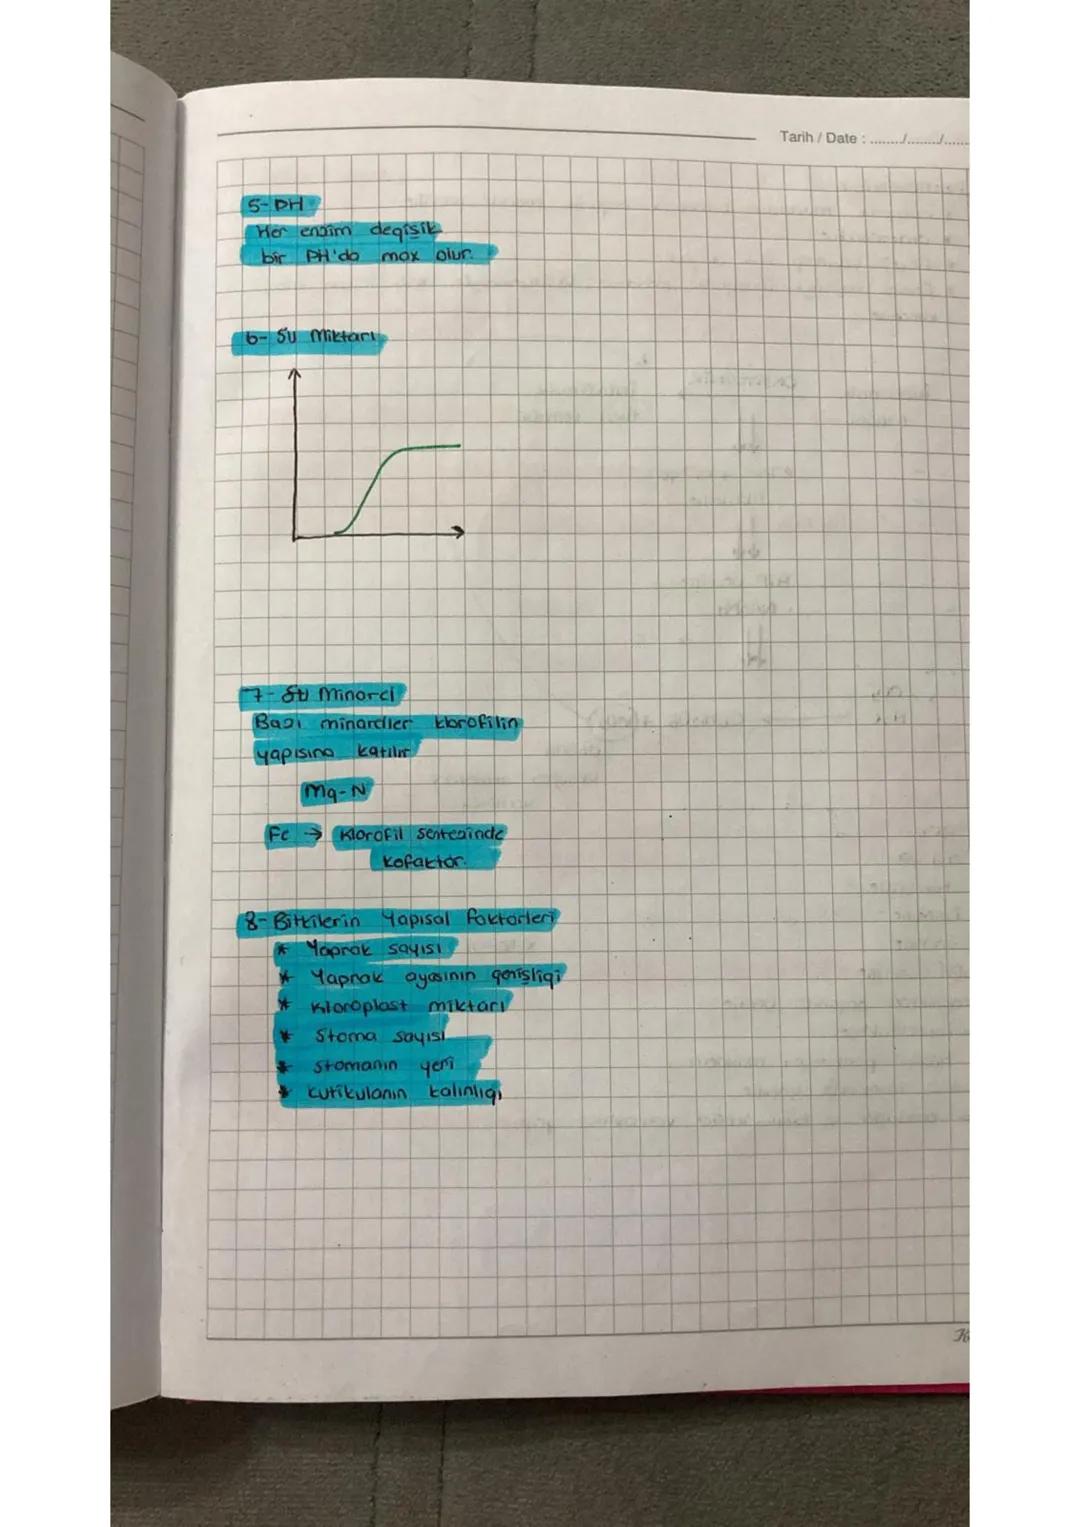 Tarih / Date : ......../......../......
5- PH
Her enzim değişik
bir PH'da max olur.
6- Su Miktarı
7- Su Minarel
Bazı minareller klorofilin
yapısına katılır
Mg-N
Fe → Klorofil sentezinde
kofaktör.
8- Bitkilerin Yapısal Faktörleri
* Yaprak sayısı
* Yaprak ayasının genişliği
* Kloroplast miktarı
* Stoma sayısı
* Stomanın yeri
* Kutikulanın kalınlığı